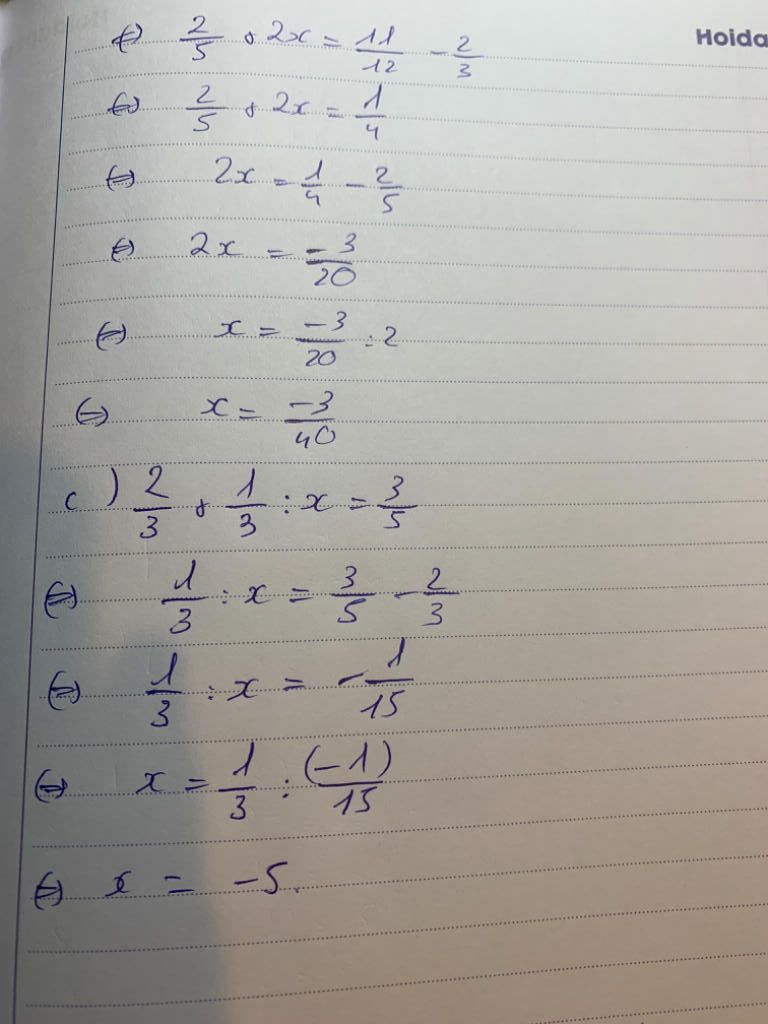 Hoida
⇔ 2/5 + 2x = 11/12 - 2/3
⇔ 2/5 + 2x = 1/4
⇔ 2x = 1/4 - 2/5
⇔ 2x = -3/20
⇔ x = -3/20 : 2
⇔ x = -3/40
c) 2/3 + 1/3 : x = 3/5
⇔ 1/3 : x = 3/5 - 2/3
⇔ 1/3 : x = -1/15
⇔ x = 1/3 : (-1)/15
⇔ x = -5.